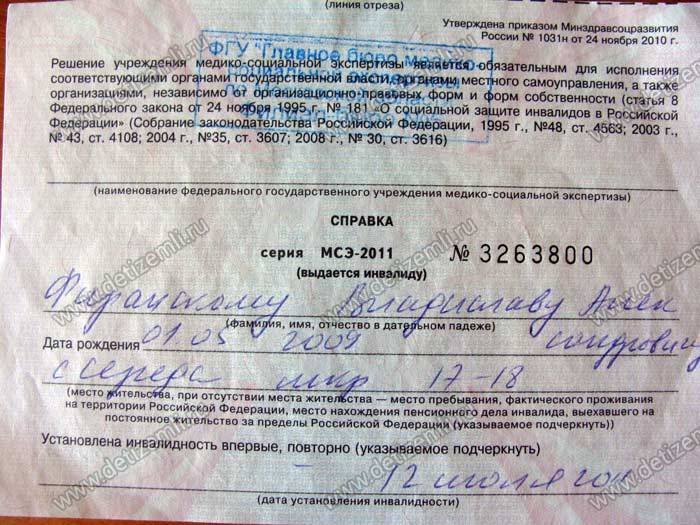 (линия отреза)
Утверждена приказом Минздравсоцразвития
России № 1031н от 24 ноября 2010 г.
ФГУ "Главное бюро медико-
Решение учреждения медико-социальной экспертизы является обязательным для исполнения
соответствующими органами государственной власти, органами местного самоуправления, а также
организациями, независимо от организационно-правовых форм и форм собственности (статья 8
Федерального закона от 24 ноября 1995 г. № 181 «О социальной защите инвалидов в Российской
Федерации» (Собрание законодательства Российской Федерации, 1995 г., №48, ст. 4563; 2003 г.,
№ 43, ст. 4108; 2004 г., №35, ст. 3607; 2008 г., № 30, ст. 3616)
(наименование федерального государственного учреждения медико-социальной экспертизы)
СПРАВКА
серия МСЭ-2011 № 3263800
(выдается инвалиду)
Владиславу Алек
(фамилия, имя, отчество в дательном падеже)
Дата рождения 01.05 2009 сандрович
с Середа мкр 17-18
(место жительства, при отсутствии места жительства — место пребывания, фактического проживания
на территории Российской Федерации, место нахождения пенсионного дела инвалида, выехавшего на
постоянное жительство за пределы Российской Федерации (указываемое подчеркнуть))
Установлена инвалидность впервые, повторно (указываемое подчеркнуть)
12 июля 2011
(дата установления инвалидности)
www.detizemli.ru